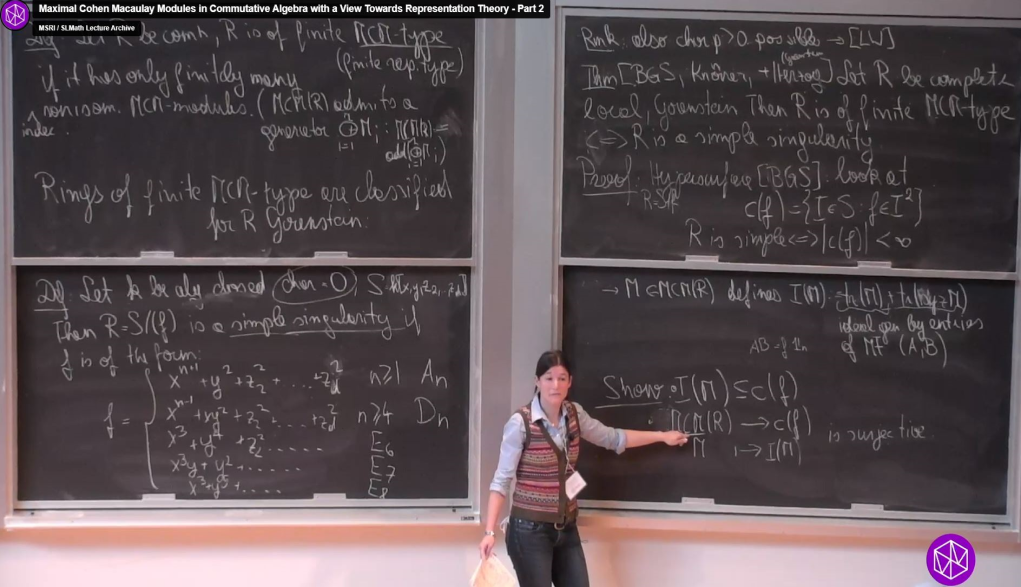 Maximal Cohen Macaulay Modules in Commutative Algebra with a View Towards Representation Theory - Part 2
MSRI / SLMath Lecture Archive
Def Let R be comm, R is of finite MCM-type
(finite rep. type)
if it has only finitely many
nonisom. MCM-modules. (MCM(R) admits a
indec.
generator ⊕ M_i : MCM(R) =
add(⊕ M_i)
Rings of finite MCM-type are classified
for R Gorenstein.
Def. Let k be alg closed char = 0, S
Then R=S/(f) is a simple singularity if
f is of the form:
x^{n+1} + y^2 + z_2^2 + ... + z_d^2 n≥1 A_n
f = x^{n-1} + xy^2 + z_2^2 + ... z_d^2 n≥4 D_n
x^3 + y^4 + z_2^2 ..... E_6
x^3y + y^2 + ...... E_7
x^3 + y^5 + .... E_8
Rmk: also char p>0 possible → [LW]
Thm [BGS, Knörrer, + Herzog] Let R be complete
local, Gorenstein Then R is of finite MCM-type
<=> R is a simple singularity.
Proof: Hypersurface [BGS]: look at
R=S/f
c(f) = {I∈S : f∈I^2}
R is simple <=> |c(f)| < ∞
→ M∈MCM(R) defines I(M):
ideal gen by entries
of MF (A,B)
AB = f 1_n
Show: I(M) ⊆ c(f)
MCM(R) → c(f)
is surjective.
M ↦ I(M)